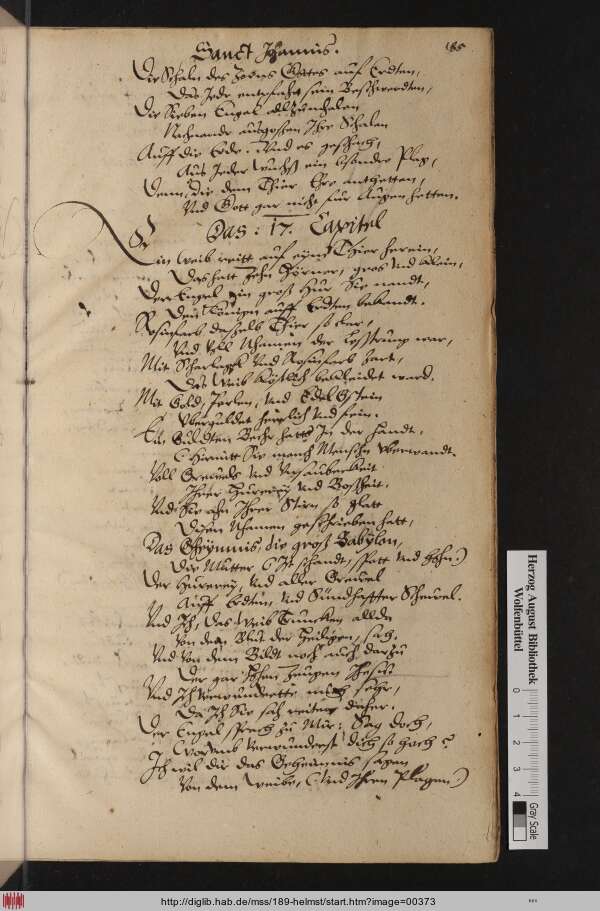 Sanct Johannis.
185
Die Schaln des Zorns Gottes auf Erdten,
Das Jede entpfaht sein Beschwerdten,
Die Sieben Engel allzumhalen
Nachnander ausgossen Ihre Schalen
Auff die Erde. Und es geschach,
Aus Jeder wuchs ein besonder Plag,
Denn, die dem Thier Ehr anthetten,
Und Gott gar nicht für Augen hetten.
Das: 17. Capitel
Ein Weib reitt auf eym Thier herein,
Das hatt Zehn Hörner, gros und klein,
Der Engel ein gross Hur Sie nandt,
Den Königen auff Erdten bekandt.
Rosinfarb desselb Thier so
Und voll Nhamen der Lestrung war,
Mit Scharlach und Rosinfarb
Das Weib köstlich bekleidet ward.
Mit Gold, Perlen, und Edel Gstein
Vberguldet herrlich und fein.
Ein Guldten Becher hatts In der Handt,
(Hiemitt Sie manch Menschn
Voll Greuels und Unsauberkeit
Ihrer Hurerey und Bosheit.
Und Sie ahn Ihrer Stirn so glatt
Diesen Nhamen geschrieben hatt,
Das Gheymnis, die gross Babylon,
Die Mutter (Ist schandt, spott und Hohn)
Der Hurerey, und aller Greuel
Auff Erdten, und Sündhaffter Scheuel.
Und Ich, das Weib Truncken allda
Von dem Blut der Heiligen, sah.
Und von dem Blut noch auch darzu
Der gar Zeugen Jhesu.
Und Ich verwundrette mich sehr,
Da Ich Sie sah reiten daher.
Der Engel sprach zu Mir: Sag doch,
Worumb verwunderst dich so hoch?
Ich wil dir das Geheimnis sagen
Von dem Weibe, (Und Ihren Plagen)
Herzog August Bibliothek
Wolfenbüttel
0 1 2 3 4
Gray Scale
http://diglib.hab.de/mss/189-helmst/start.htm?image=00373